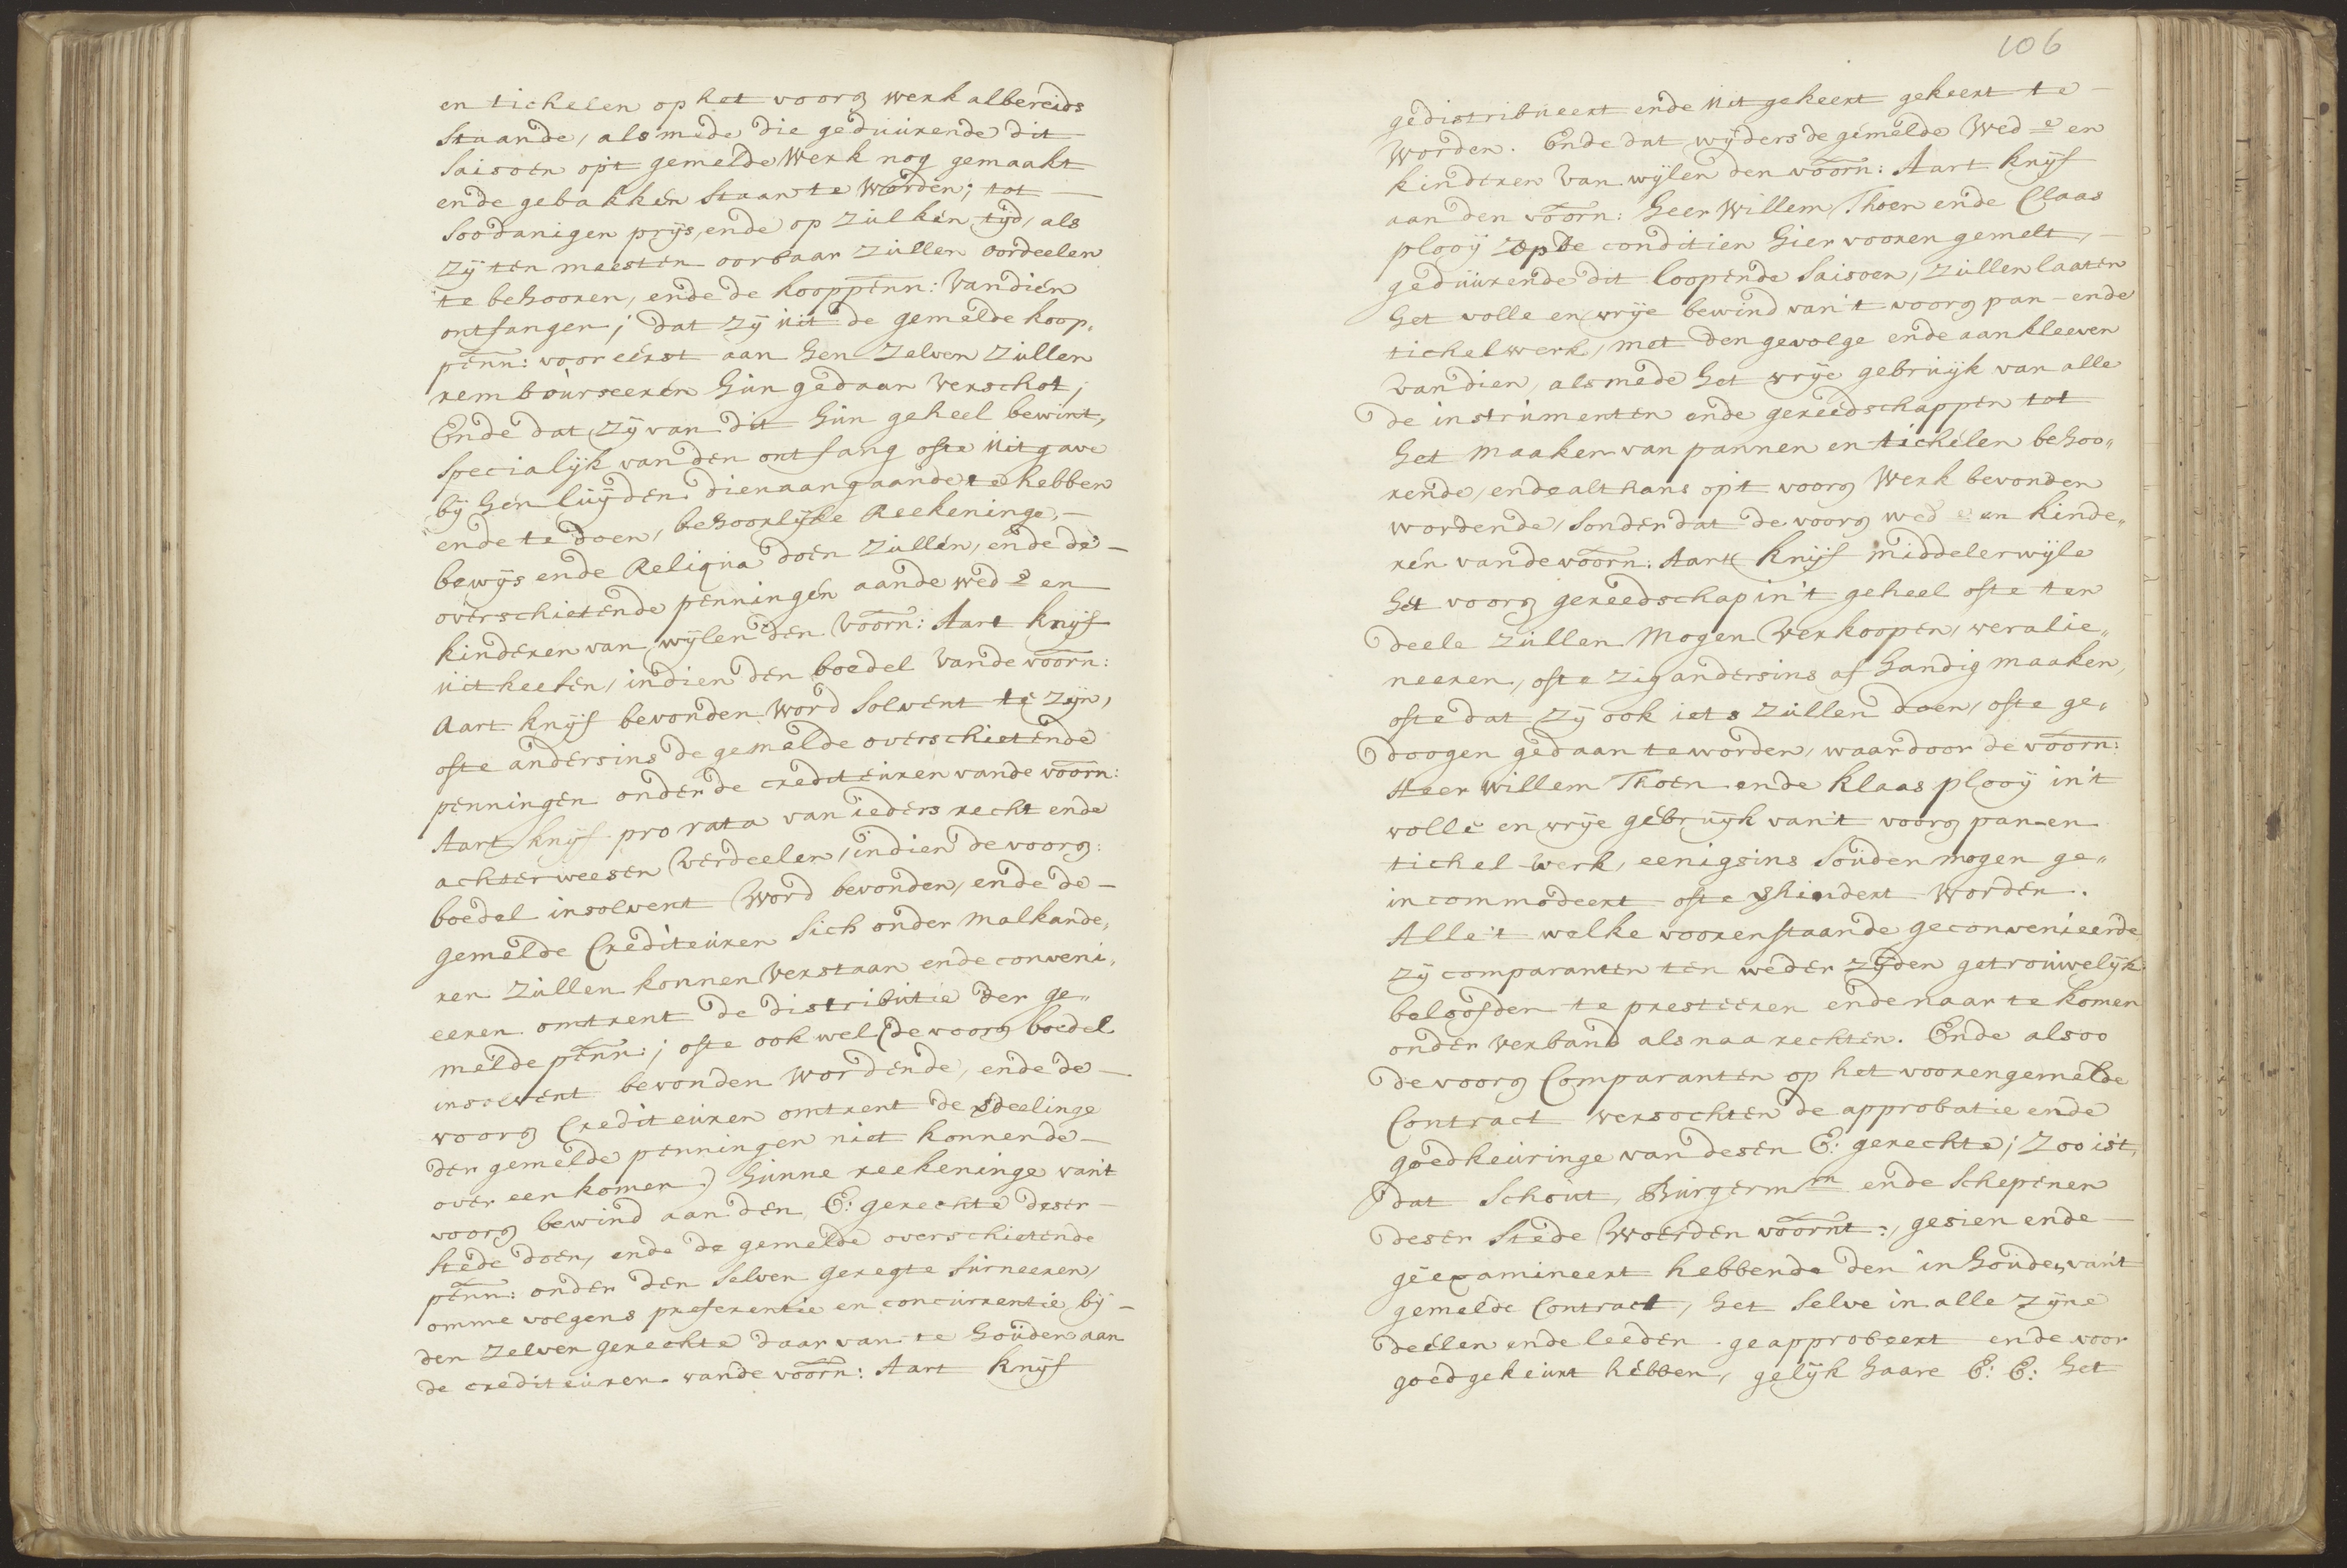 en tichelen op het voorg werk albereids
staande, alsmede die geduurende dit
saisoen op't gemelde werk nog gemaakt
ende gebakken staan te worden; tot —
soodanigen prijs, ende op zulken tijd, als
zij ten maesten oorbaar zullen oordeelen
te behooren, ende de kooppenn: van dien
ontfangen; dat zij uit de gemelde koop,
penn: voor eerst aan hen zelven zullen
rembourseeren hun gedaan verschot;
Ende dat zij van dit hun geheel bewint,
specialijk van den ontfang ofte uitgave
bij hen luijden dienaangaande te hebben
ende te doen, behoorlijke Reekeninge, —
bewijs ende Reliqua doen zullen, ende de —
overschietende penningen aan de wed:e en
kinderen van wijlen den voorn: Aart knijf
uitkeeren, indien den boedel van de voorn:
Aart knijf bevonden word solvent te zijn,
ofte andersins de gemelde overschietende
penningen onder de crediteuren van de voorn:
Aart knijf pro rata van ieders recht ende
achterweesen verdeelen, indien de voorg:
boedel insolvent word bevonden, ende de —
gemelde Crediteuren sich onder malkande,
ren zullen konnen verstaan ende conveni,
eeren omtrent de distributie der ge„
melde penn:; ofte ook wel (de voorg boedel
insolvent bevonden wordende, ende de —
voorg Crediteuren omtrent de sdeelinge
der gemelde penningen niet konnende —
over een komen) hunne reekeninge van't
voorg bewind aan den E: gerechte deser —
stede doen, ende de gemelde overschietende
penn: onder den selven geregte furneeren,
omme volgens preferentie en concurrentie bij —
den zelven gerechte daar van te houden aan
de crediteuren van de voorn: Aart knijf
106
gedistribueert ende uitgekeert gekeert te —
worden. Ende dat wijders de gemelde Wed:e en
kinderen van wijlen den voorn: Aart knijf
aan den voorn: heer Willem Thoen ende Claas
plooij op de conditien hier vooren gemelt, —
geduurende dit loopende saisoen, zullen laaten
het volle en vrije bewind van't voorg pan- ende
tichelwerk, met den gevolge ende aankleeven
van dien, alsmede het vrije gebruijk van alle
de instrumenten ende gereedschappen tot
het maaken van pannen en tichelen behoo„
rende, ende althans op't voorg werk bevonden
wordende, sonder dat de voorg wed:e en kinde„
ren van de voorn: Aart knijf middelerwijle
het voorg gereedschap in't geheel ofte ten
deele zullen mogen verkoopen, veralie„
neeren, ofte zig andersins af handig maaken,
ofte dat zij ook iets zullen doen, ofte ge„
doogen gedaan te worden, waardoor de voorn:
Heer Willem Thoen ende Klaas plooij in't
volle en vrije gebruijk van't voorg pan-en
tichel-werk, eenigsins souden mogen ge„
incommodeert ofte ghindert worden.
Alle't welke voorenstaande geconvenieerde
zij comparanten ten weder zijden getrouwelijk
beloofden te presteeren ende naar te komen
onder verband als naa rechten. Ende alsoo
de voorg Comparanten op het voorengemelde
Contract versochten de approbatie ende
goedkeuringe van desen E: gerechte; Zoo is't,
dat Schout, Burgermrn ende Schepenen
deser Stede Woerden voornt:, gesien ende —
geexamineert hebbende den inhoude van't
gemelde Contract, het selve in alle zijne
deelen ende leeden geapprobeert ende voor
goed gekeurt hebben, gelijk haare E: E: het